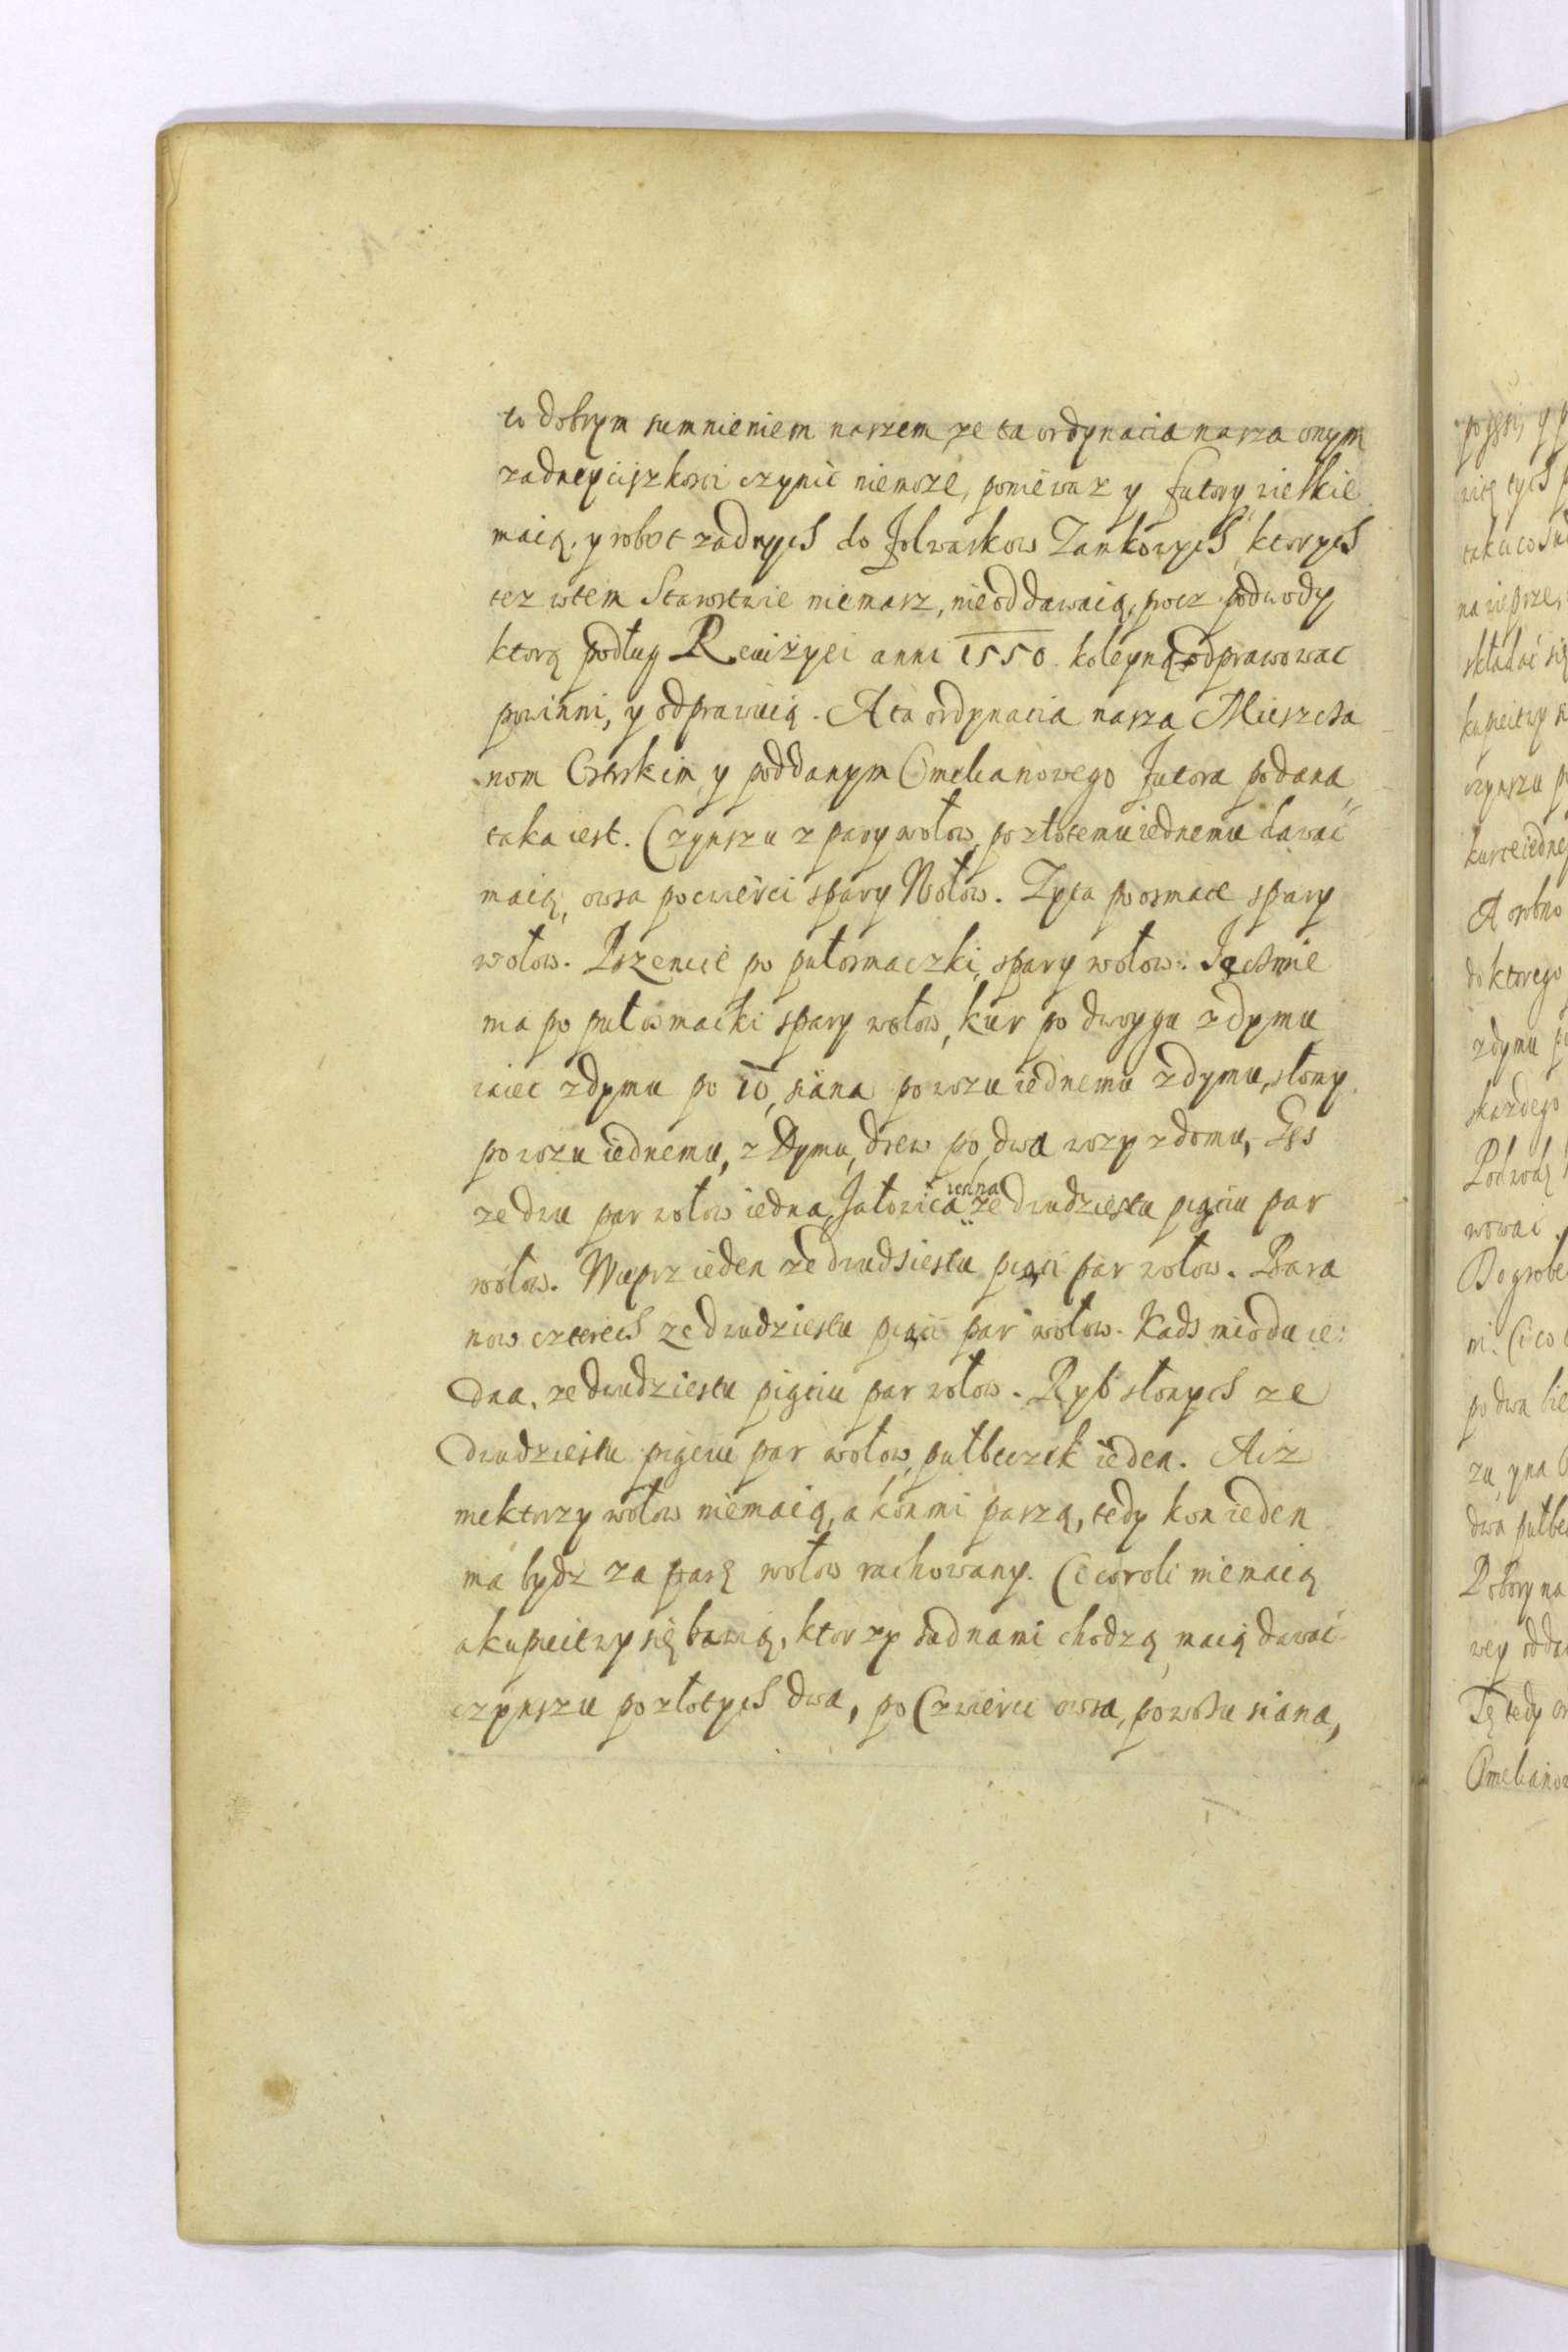 to dobrym sumnieniem naszem ze ta ordynacia nasza onym
zadney ciszkosci czynic niemoze, poniewaz y futory wielkie
maią, y robot zadnych do folwarkow Zamkowych, ktorych
tez wtem Starostwie niemasz, nieoddawaią, procz podwody
ktorą podług Reuizyei anni 1550. koleyną odprawowac
powinni, y odprawuią. A ta ordynacia nasza Mieszcza
nom Osterskim y poddanym Omelianowego futora podana
taka iest. Czynszu z pary wołow, po złotemu iednemu dawać
maią, owsa pocwierci spary Wołow. Zyta po osmace spary
wołow. Pszenice po pułosmaczki, spary wołow. Jęchmie
nia po pułosmacki spary wołow, kur po dwoygu zdymu
iaiec zdymu po 10, siana po wozu iednemu zdymu, słomy
po wozu iednemu, z Dymu, drew po dwa wozy zdomu, Gęs
ze dwu par wołow iedna, Jałowica iedna ze dwudziestu pięciu par
wołow. Wieprz ieden ze dwudziestu pięci par wołow. Bara
now czterech ze dwudziestu pięci par wołow. Kadz miodu ie:
dna, ze dwudziestu pięciu par wołow. Ryb słonych ze
dwudziestu pięciu par wołow, pułbeczek ieden. A iz
niektorzy wołow niemaią, a konmi parzą, tedy kon ieden
ma bydz za parę wołow rachowany. Ci co roli niemaią
a kupiectwy się bawią, ktorzy sadnami chodzą, maią dawać
czynszu po złotych dwa, po Czwierci owsa, po wozu siana,